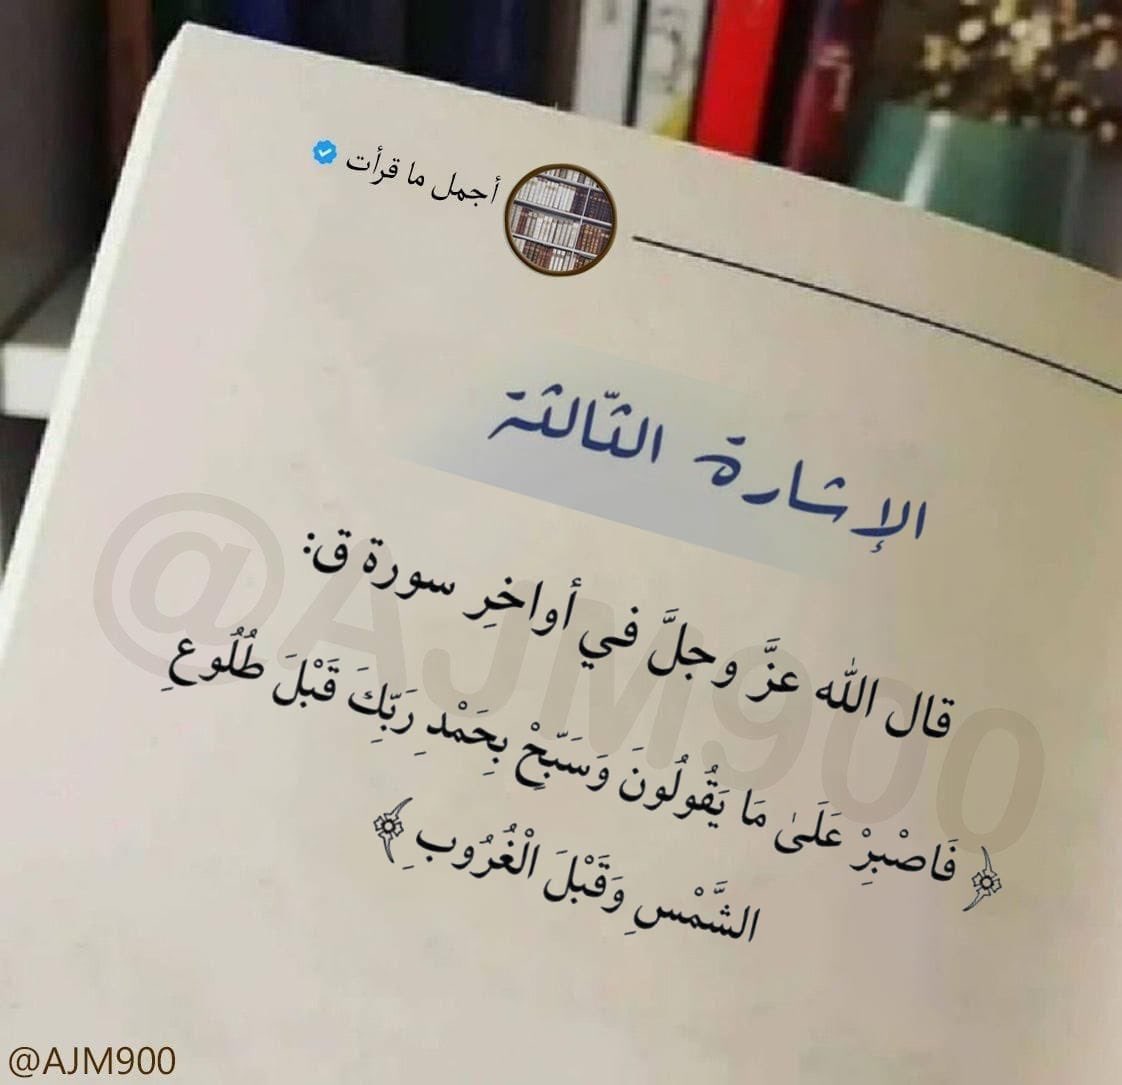 أجمل ما قرأت
الإشارة الثّالثة
قال الله عزَّ وجلَّ في أواخرِ سورة ق:
﴿ فَاصْبِرْ عَلَىٰ مَا يَقُولُونَ وَسَبِّحْ بِحَمْدِ رَبِّكَ قَبْلَ طُلُوعِ
الشَّمْسِ وَقَبْلَ الْغُرُوبِ ﴾
@AJM900
@AJM900